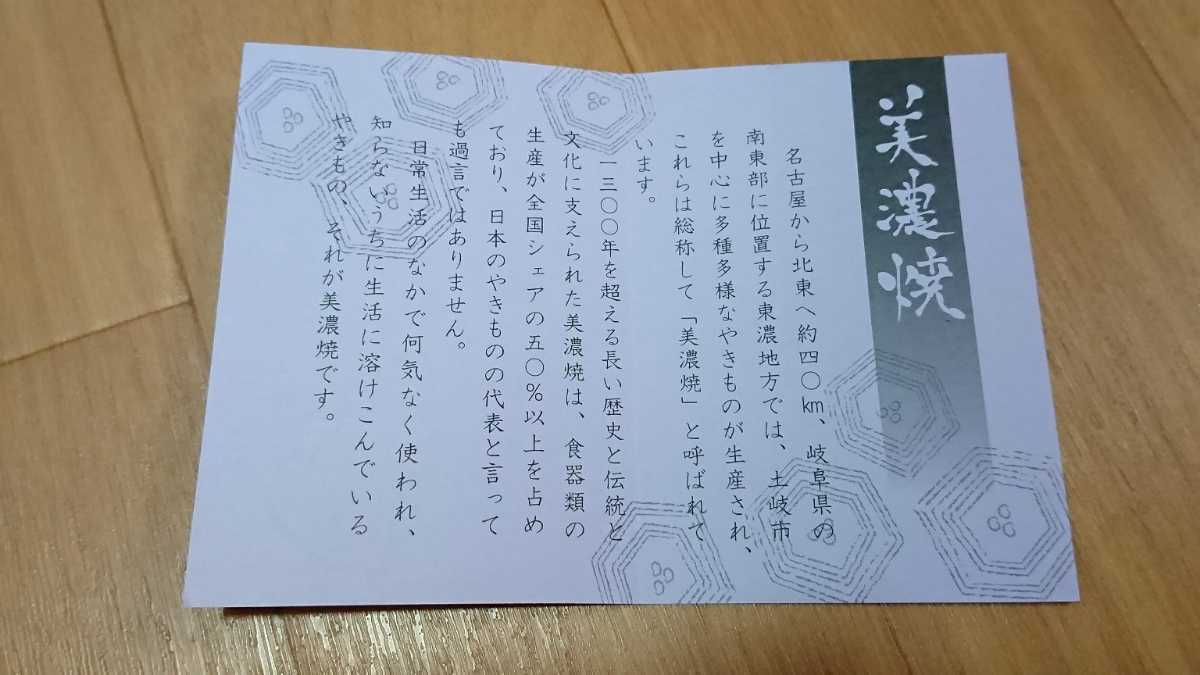 美濃焼
名古屋から北東へ約四〇㎞、岐阜県の
南東部に位置する東濃地方では、土岐市
を中心に多種多様なやきものが生産され、
これらは総称して「美濃焼」と呼ばれて
います。
一三〇〇年を超える長い歴史と伝統と
文化に支えられた美濃焼は、食器類の
生産が全国シェアの五〇％以上を占め
ており、日本のやきものの代表と言って
も過言ではありません。
日常生活のなかで何気なく使われ、
知らないうちに生活に溶けこんでいる
やきもの、それが美濃焼です。